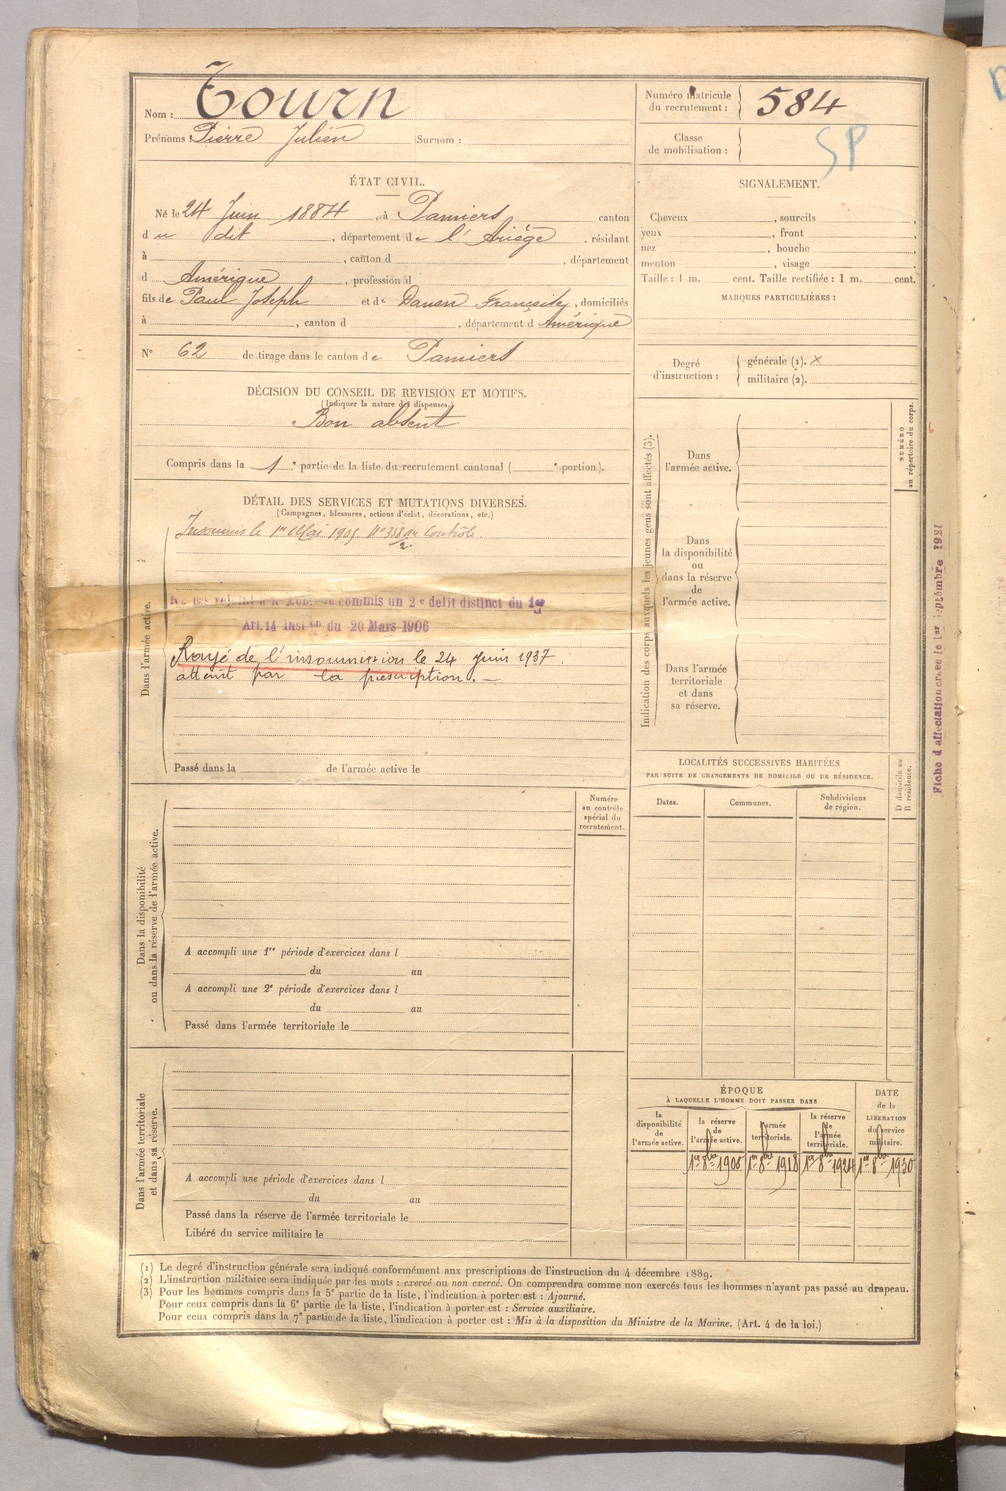 Nom : Tourn
Prénoms : Pierre Julien Surnom :
Numéro matricule du recrutement : 584
Classe de mobilisation :
SP
ÉTAT CIVIL.
Né le 24 Juin 1884, à Pamiers canton
du dit, département de l'Ariège, résidant
à , canton d , département
d Amérique, profession d
fils de Paul Joseph et de , domiciliés
à , canton d , département d Amérique
N° 62 de tirage dans le canton de Pamiers
DÉCISION DU CONSEIL DE REVISION ET MOTIFS.
(Indiquer la nature des dispenses.)
Bon absent
Compris dans la 1e partie de la liste du recrutement cantonal ( e portion).
SIGNALEMENT.
Cheveux , sourcils ,
yeux , front ,
nez , bouche ,
menton , visage ,
Taille : 1 m. cent. Taille rectifiée : 1 m. cent.
MARQUES PARTICULIÈRES :
Degré d'instruction : générale (1). x
militaire (2).
DÉTAIL DES SERVICES ET MUTATIONS DIVERSES.
(Campagnes, blessures, actions d'éclat, décorations, etc.)
Dans l'armée active.
Insoumis le 1er Mai 1905. N° 338 au Contrôle.
commis un 2e délit distinct du 1er
Art. 14 Inst on du 20 Mars 1906
Rayé de l'insoumission le 24 juin 1937
atteint par la prescription. —
Passé dans la de l'armée active le
Indication des corps auxquels les jeunes gens sont affectés (3).
NUMÉRO au répertoire du corps.
Dans l'armée active.
Dans la disponibilité ou dans la réserve de l'armée active.
Dans l'armée territoriale et dans sa réserve.
Fiche d'affectation créée le 1er Septembre 1927
LOCALITÉS SUCCESSIVES HABITÉES
PAR SUITE DE CHANGEMENTS DE DOMICILE OU DE RÉSIDENCE.
Dates.
Communes.
Subdivisions de région.
D domicile ou R résidence.
Dans la disponibilité ou dans la réserve de l'armée active.
Numéro au contrôle spécial du recrutement.
A accompli une 1re période d'exercices dans l
du au
A accompli une 2e période d'exercices dans l
du au
Passé dans l'armée territoriale le
Dans l'armée territoriale et dans sa réserve.
A accompli une période d'exercices dans l
du au
Passé dans la réserve de l'armée territoriale le
Libéré du service militaire le
ÉPOQUE
À LAQUELLE L'HOMME DOIT PASSER DANS
la disponibilité de l'armée active.
la réserve de l'armée active.
l'armée territoriale.
la réserve de l'armée territoriale.
DATE de la LIBÉRATION du service militaire.
1er 8bre 1908
1er 8bre 1918
1er 8bre 1924
1er 8bre 1930
(1) Le degré d'instruction générale sera indiqué conformément aux prescriptions de l'instruction du 4 décembre 1889.
(2) L'instruction militaire sera indiquée par les mots : exercé ou non exercé. On comprendra comme non exercés tous les hommes n'ayant pas passé au drapeau.
(3) Pour les hommes compris dans la 5e partie de la liste, l'indication à porter est : Ajourné.
Pour ceux compris dans la 6e partie de la liste, l'indication à porter est : Service auxiliaire.
Pour ceux compris dans la 7e partie de la liste, l'indication à porter est : Mis à la disposition du Ministre de la Marine. (Art. 4 de la loi.)